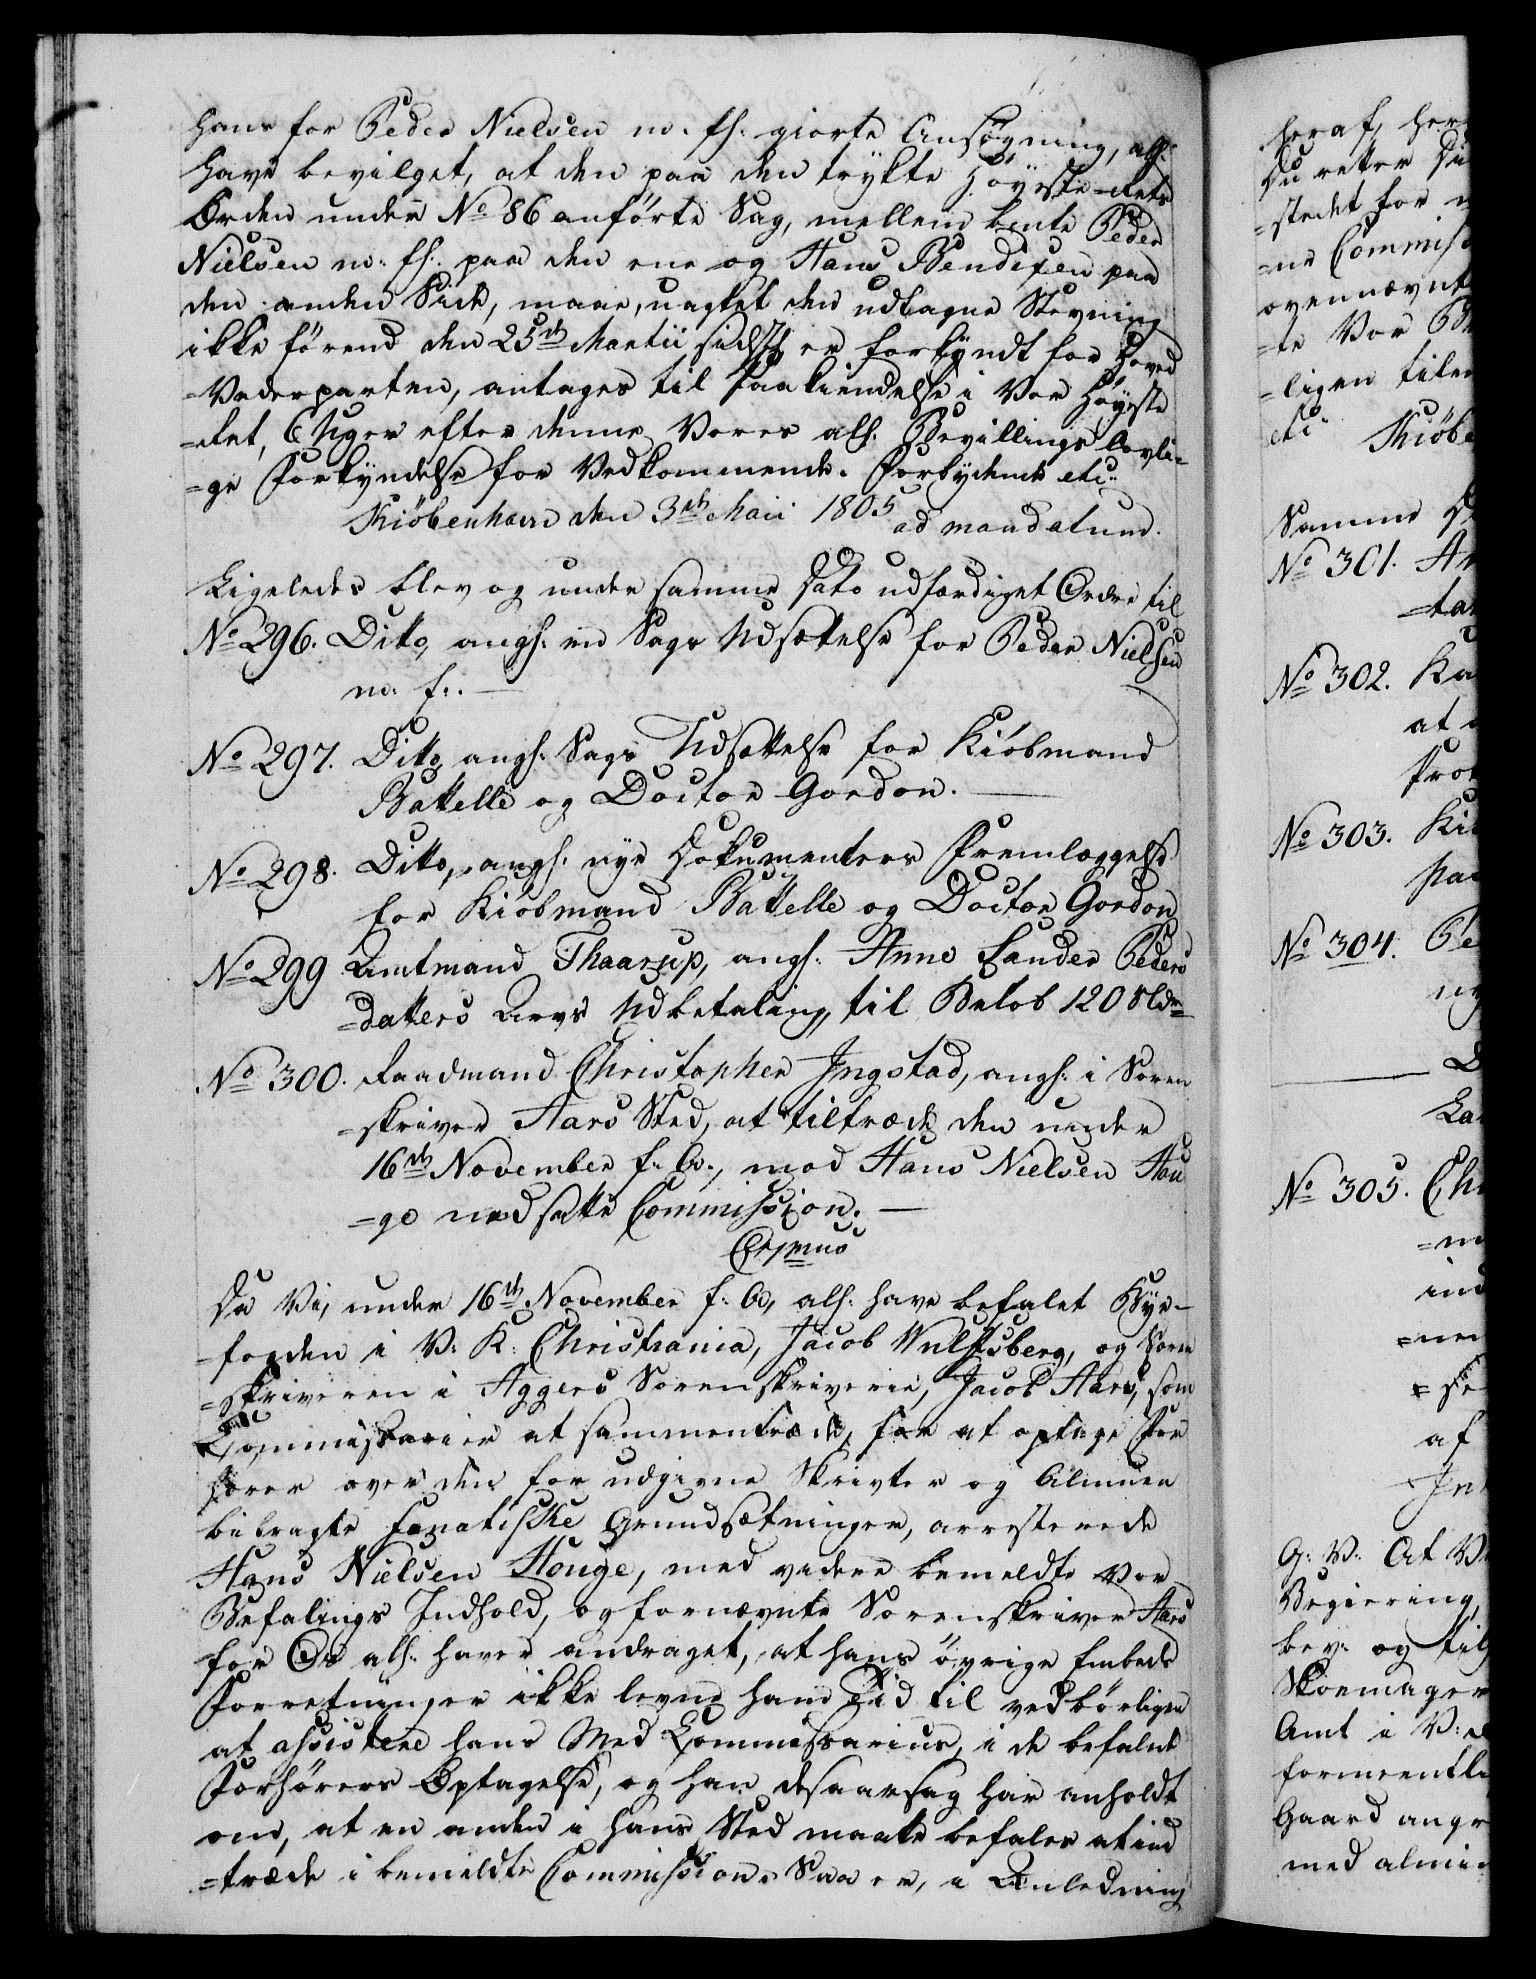 hans for Peder Nielsen m. fl. giorte Ansøgning, all:
have bevilget, at den paa den trykte Høyeste-Rets
Orden under No 86 anførte Sag, mellem bente Peder
Nielsen m. fl: paa den ene og Hans Bendixen paa
den anden Side, maae, uagtet den udtagne Stevning
ikke førend den 25de Martii sidst er forkyndt for Hoved
=Vederparten, antages til Paakiendelse i Vor Høyeste
=Ret, 6 Uger efter denne Vores all. Bevillings lovli=
=ge Forkyndelse for Vedkommende. Forbydende etc:
Kiöbenhavn den 3de Maii 1805
ad mandatum.
Ligeledes blev og under samme Dato udfærdiget Ordre til
No 296. Ditto, angl: en Sags Udsættelse for Peder Nielsen
m. f:. —
No 297. Ditto angl: Sags Udsættelse for Kiöbmand
Battelle og Doctor Gordon. —
No 298. Ditto, angl: nye Dokumenters Fremlæggelse
for Kiöbmand Battelle og Doctor Gordon
No 299 Amtmand Thaarup, angl: Anne Lauder Peders
=datters Arvs Udbetaling, til Beløb 120 Rdr
No 300. Raadmand Christopher Ingstad, angl: i Soren
=skriver Aars Sted, at tiltræde den under
16de November f. A., mod Hans Nielsen Hou
=ge nedsatte Commission. —
Da Vi, under 16de November f: A, all: have befalet Bye=
=fogden i V: K: Christiania, Jacob Wulfsberg, og Soren
=skriveren i Aggers Sorenskriverie, Jacob Aars, som
Commissarier at sammentræde, for at optage For
hører over den for udgivne Skrivter og Almuen
bibragte fanatiske Grundsætninger, arresterede
Hans Nielsen Houge, med videre bemeldte Vor
Befalings Indhold, og fornævnte Sorenskriver Aars
for Os all: haver andraget, at hans övrige Embeds
Forretninger ikke levne ham Tid til vedbörligen
at assistere hans Med Commissarius, i de befalede
Forhørers Optagelse, og han desaarsag har anholdt
om, at en anden i hans Sted maatte befales at ind
=træde i bemeldte Commission. Saa er, i Anledning
heraf, her
Du retter Di
=stedet for
=ne Commiss
ovennævnt
=te Vor
=ligen tilen
etc. Kiöbe
Samme D
No 301. An
=tan
No 302. Ka
at
Pro
No 303. Kiö
paa
No 304. Pe
Lan
No 305. Chr
ind
af
G: V: At Vi
Regiering,
bev: og till
Skoemager
Amt i V:
formeentli
Gaard angr
med almin